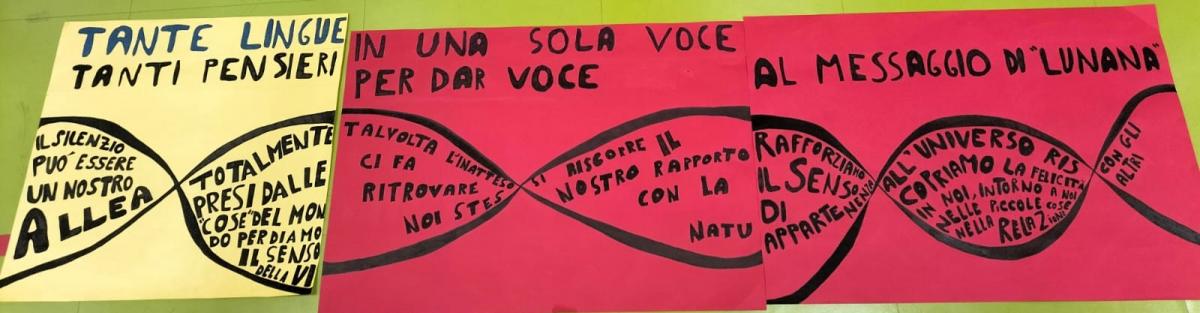 TANTE LINGUE
TANTI PENSIERI
IL SILENZIO
PUÓ ESSERE
UN NOSTRO
ALLEA
TOTALMENTE
PRESI DALLE
"COSE" DEL MON
DO PERDIAMO
IL SENSO
DELLA VI
IN UNA SOLA VOCE
PER DAR VOCE
TALVOLTA L'INATTESO
CI FA
RITROVARE
NOI STES
SI RISCOPRE IL
NOSTRO RAPPORTO
CON LA
NATU
AL MESSAGGIO DI "LUNANA"
RAFFORZIAMO
IL SENSO
DI
APPARTENENZA
ALL'UNIVERSO RIS
COPRIAMO LA FELICITÀ
IN NOI, INTORNO A NOI
NELLE PICCOLE COSE
NELLA RELAZIONI
CON GLI
ALTRI